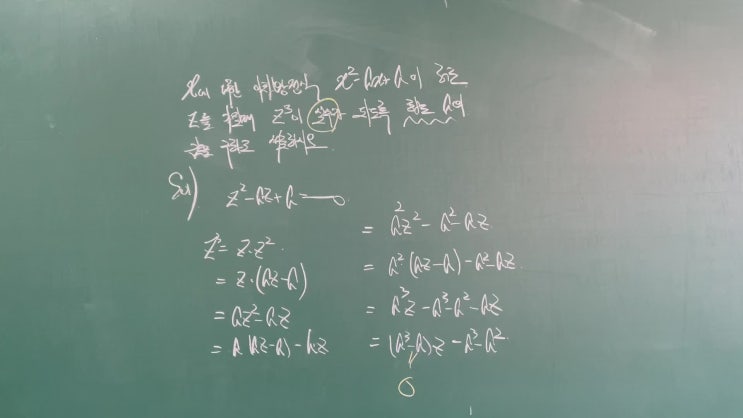 x에 대한 이차방정식 x²-ax+a이 허근
z를 가질때 z³이 실수가 되도록 하는 a의
값을 구하시오.
Sol) z²-az+a=0
z³= z·z²
= z·(az-a)
= az²-az
= a(az-a)-az
= a²z²-a²-az
= a²·(az-a)-a²-az
= a³z-a³-a²-az
= (a³-a)z-a³-a²
0